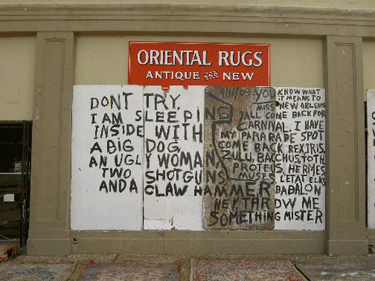 ORIENTAL RUGS
ANTIQUE AND NEW
DONT TRY.
I AM SLEEPING
INSIDE WITH
A BIG DOG,
AN UGLY WOMAN,
TWO SHOTGUNS
AND A CLAW HAMMER
YOU KNOW WHAT
IT MEANS TO
MISS NEW ORLEANS
Y'ALL COME BACK FOR
CARNIVAL. I HAVE
MY PARADE SPOT
COME BACK REX, IRIS,
ZULU, BACCHUS, TOTH
PROTEUS, HERMES
MUSES L'ETAT ELKS
BABALON
HEY THROW ME
SOMETHING MISTER